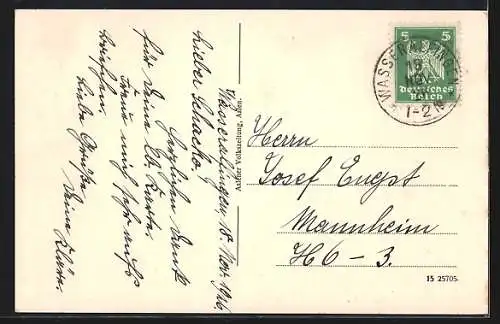 Wasseralfingen, 18. Nov. 1926.
Lieber Schacko!
Herzlichen Dank
für Deine lb. Karte.
Freue mich sehr aufs
Liebe Grüße
Deine Klara.
Aalener Volkszeitung, Aalen.
5 5
Deutsches
Reich
WASSERALFINGEN
18
NOV
1-2 N
Herrn
Josef Engst
Mannheim
H6-3.
15 25705